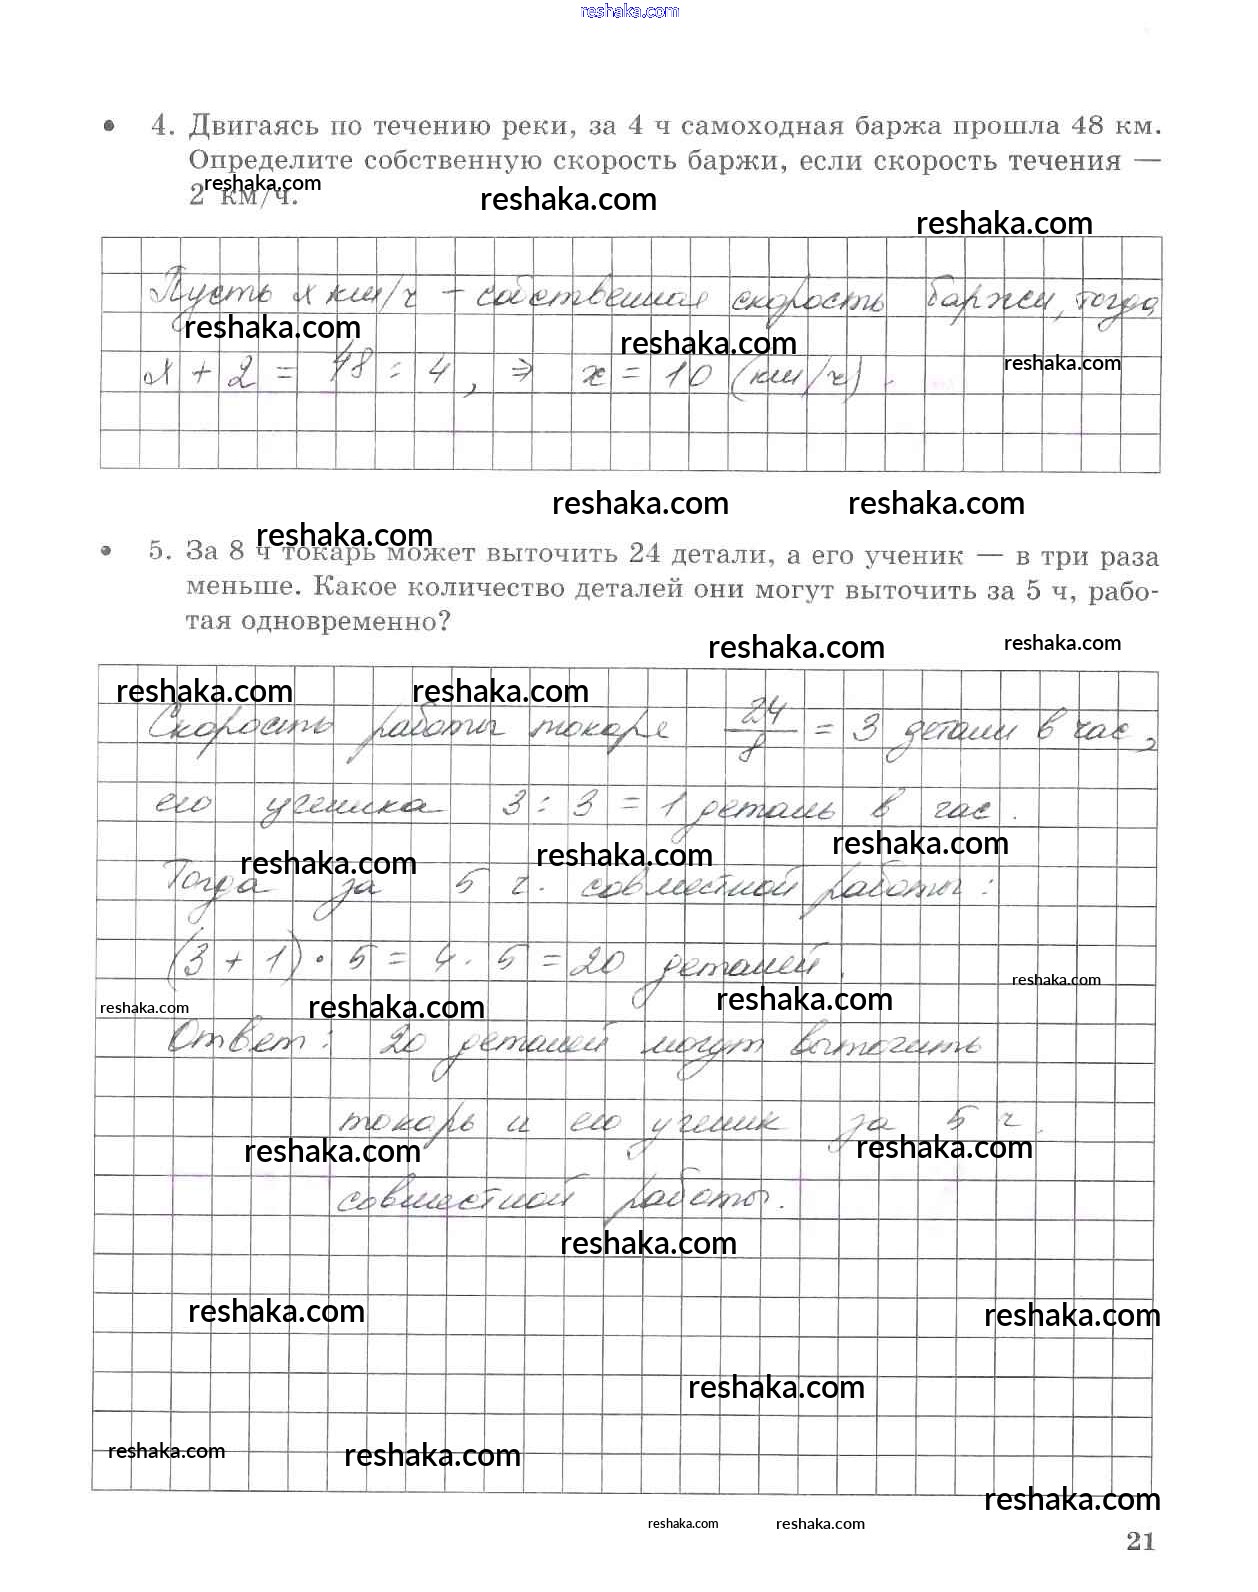 reshaka.com
• 4. Двигаясь по течению реки, за 4 ч самоходная баржа прошла 48 км.
Определите собственную скорость баржи, если скорость течения —
reshaka.com
2 км/ч.
reshaka.com
reshaka.com
Пусть x км/ч – собственная скорость баржи, тогда
reshaka.com
reshaka.com
reshaka.com
x + 2 = 48 : 4, ⇒ x = 10 (км/ч).
reshaka.com
reshaka.com
reshaka.com
• 5. За 8 ч токарь может выточить 24 детали, а его ученик — в три раза
меньше. Какое количество деталей они могут выточить за 5 ч, рабо-
тая одновременно?
reshaka.com
reshaka.com
reshaka.com
reshaka.com
Скорость работы токаря 24/8 = 3 детали в час,
его ученика 3 : 3 = 1 деталь в час.
reshaka.com
reshaka.com
reshaka.com
Тогда за 5 ч. совместной работы:
(3 + 1) · 5 = 4 · 5 = 20 деталей.
reshaka.com
reshaka.com
reshaka.com
reshaka.com
Ответ: 20 деталей могут выточить
токарь и его ученик за 5 ч.
reshaka.com
reshaka.com
совместной работы.
reshaka.com
reshaka.com
reshaka.com
reshaka.com
reshaka.com
reshaka.com
reshaka.com
reshaka.com
reshaka.com
21